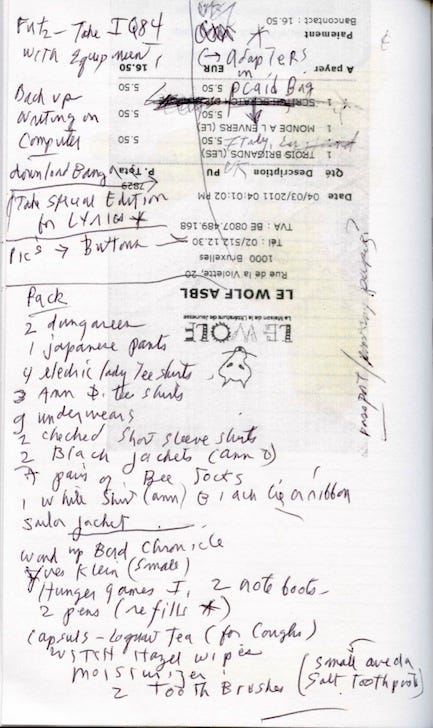 Fritz - Take 1Q84
with Equipment,
(→ adapters
in
plaid Bag
Back up
Writing on
Computer
Italy,
UK
download Banga
Take Special Edition
for Lyrics *
Pics → Buttons
Pack
2 dungarees
1 japanese pants
4 electric lady Tee shirts
3 Ann D. tee shirts
9 underwears
2 checked short sleeve shirts
2 Black Jackets (ann D)
7 pairs of Bee Socks
1 White Shirt (ann) Black tie or ribbon
Sailor Jacket
Wind up Bird Chronicle
Yves Klein (small)
Hunger Games I, 2 note books
2 pens (refills *)
Capsuls - Loquat Tea (for Coughs)
WITCH Hazel wipes
moisturizer
2 Tooth Brushes
(small aveda
Salt Toothpaste)
passport/
LE WOLF
La Maison de la Littérature de Jeunesse
LE WOLF ASBL
Rue de la Violette, 20
1000 Bruxelles
Tél : 02/512.12.30
TVA : BE 0807.489.168
Date 04/03/2011 04:01:02 PM
7829
Qté Description PU P. Total
1 TROIS BRIGANDS (LES)
1 MONDE A L ENVERS (LE) 5.50 5.50
1 5.50 5.50
A payer EUR 16.50
Paiement
Bancontact : 16.50